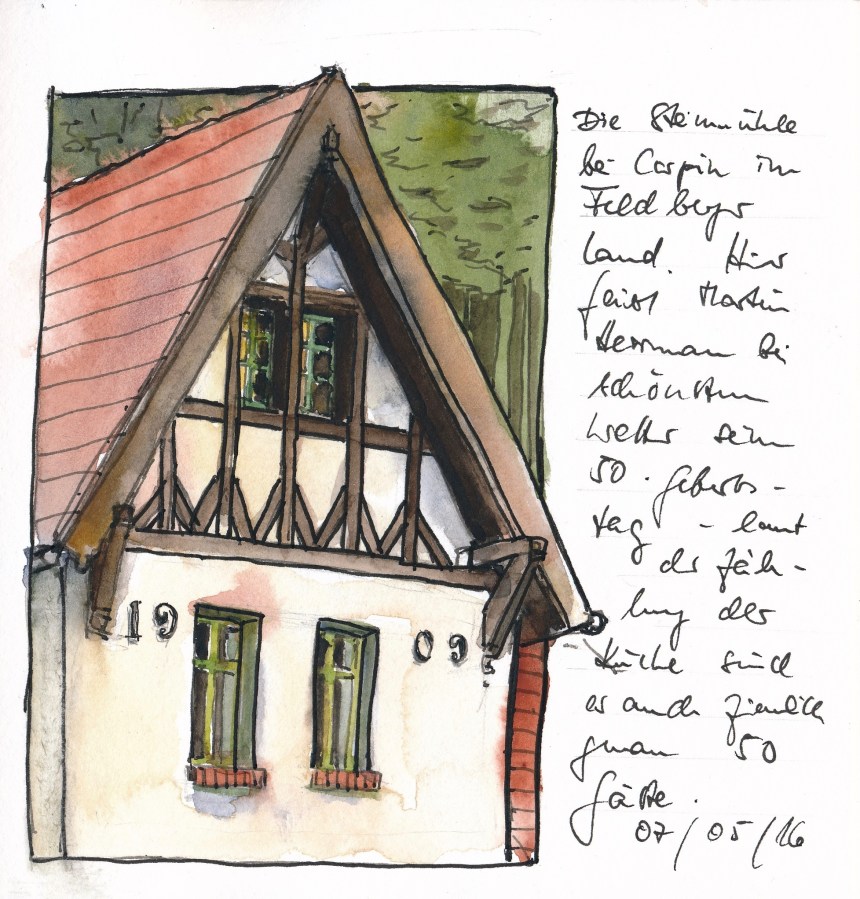 19 09
Die Steinmühle
bei Carpin im
Feldberger
Land. Hier
feiert Martin
Herrman bei
schönstem
Wetter seinen
50. Geburts-
tag - laut
der Zäh-
lung der
Küche sind
es auch ziemlich
genau 50
Gäste.
07/05/16